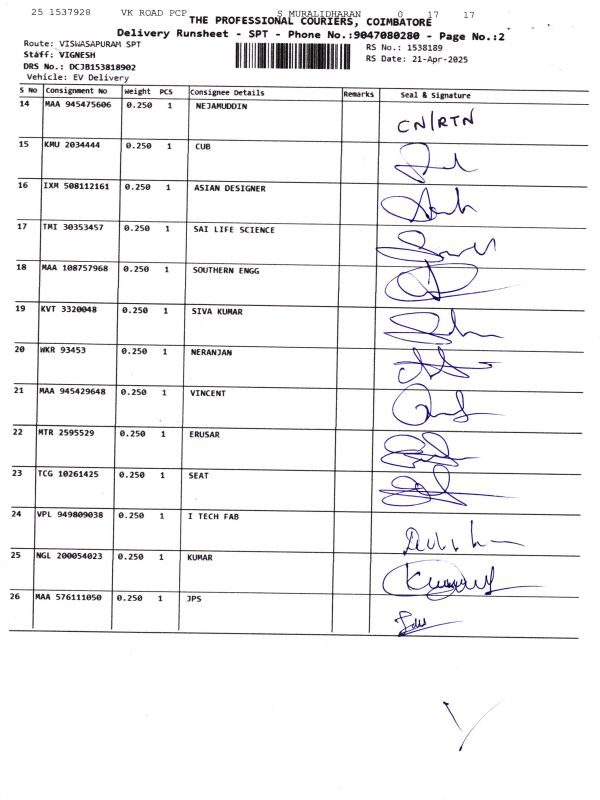 25 1537928 VK ROAD PCP S MURALIDHARAN 0 17 17
THE PROFESSIONAL COURIERS, COIMBATORE
Delivery Runsheet - SPT - Phone No.:9047080280 - Page No.:2
Route: VISWASAPURAM SPT RS No.: 1538189
Staff: VIGNESH RS Date: 21-Apr-2025
DRS No.: DCJB153818902
Vehicle: EV Delivery
S No Consignment No Weight PCS Consignee Details Remarks Seal & Signature
14 MAA 945475606 0.250 1 NEJAMUDDIN CN/RTN
15 KMU 2034444 0.250 1 CUB
16 IXM 508112161 0.250 1 ASIAN DESIGNER
17 TMI 30353457 0.250 1 SAI LIFE SCIENCE
18 MAA 108757968 0.250 1 SOUTHERN ENGG
19 KVT 3320048 0.250 1 SIVA KUMAR
20 WKR 93453 0.250 1 NERANJAN
21 MAA 945429648 0.250 1 VINCENT
22 MTR 2595529 0.250 1 ERUSAR
23 TCG 10261425 0.250 1 SEAT
24 VPL 949809038 0.250 1 I TECH FAB
25 NGL 200054023 0.250 1 KUMAR
26 MAA 576111050 0.250 1 JPS